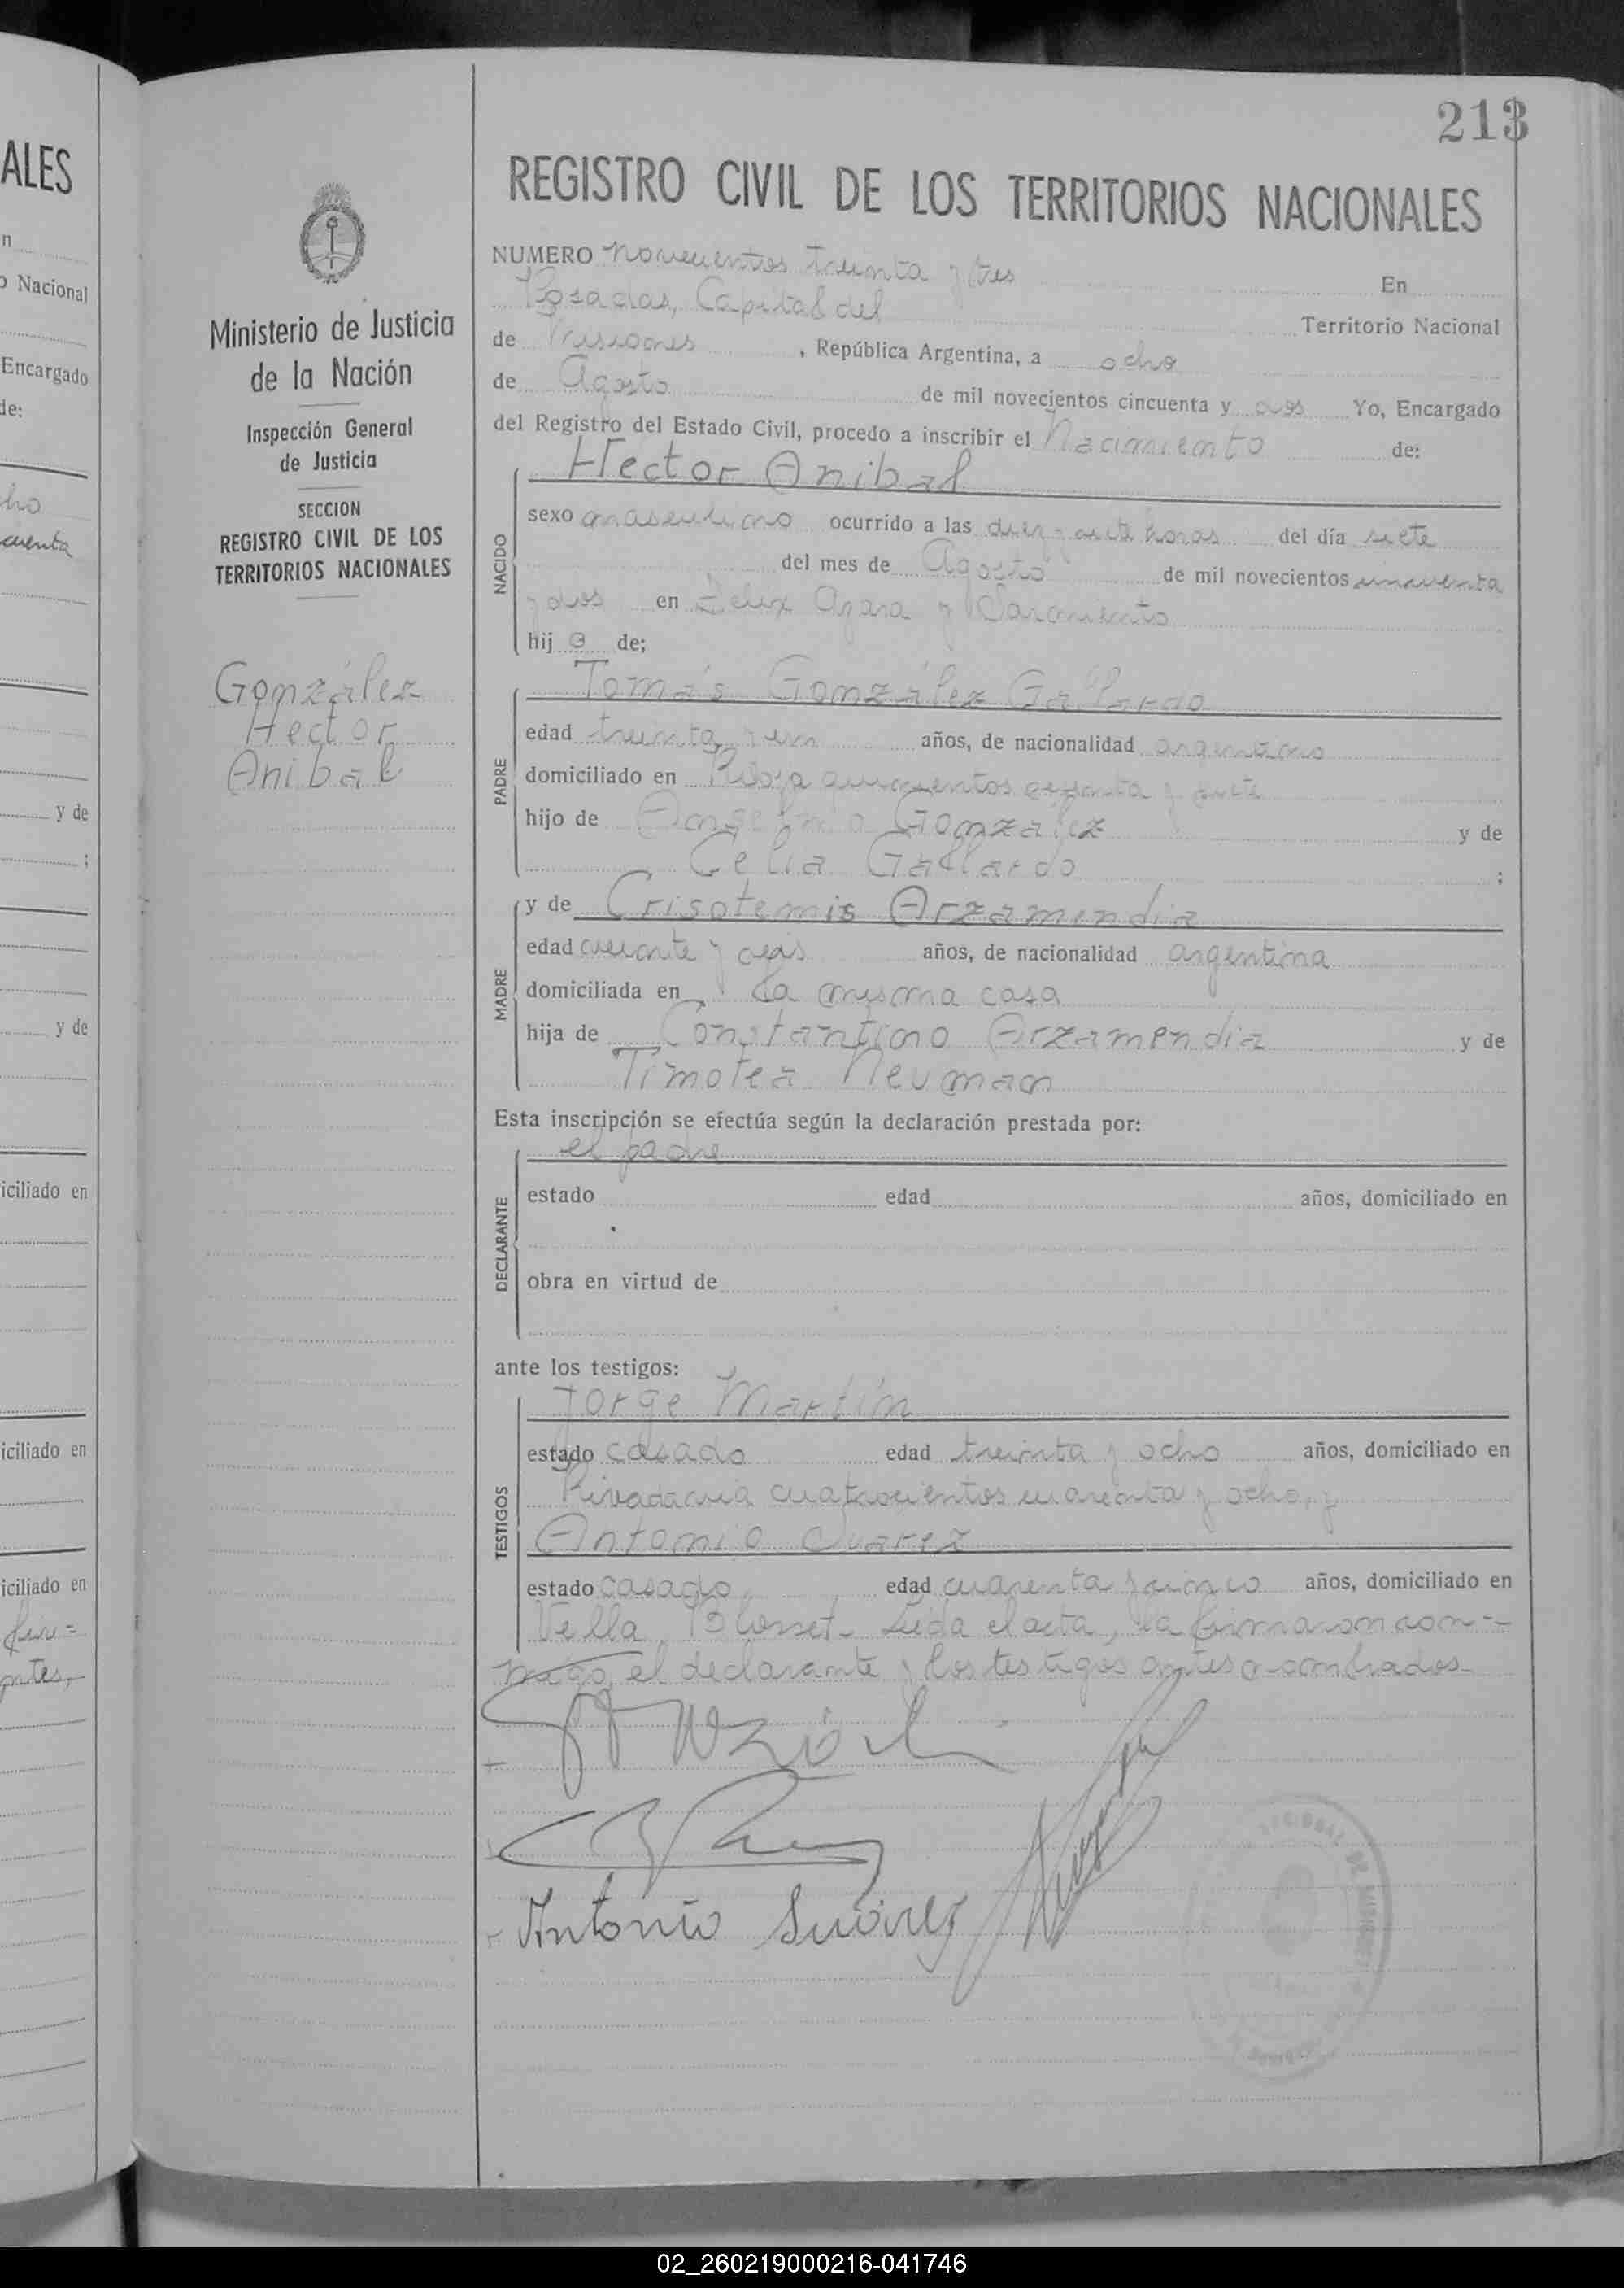 ALES
n
o Nacional
Encargado
de:
cho
cuenta
y de
;
y de
iciliado en
iciliado en
iciliado en
fir=
ntes,-
Ministerio de Justicia
de la Nación
Inspección General
de Justicia
SECCION
REGISTRO CIVIL DE LOS
TERRITORIOS NACIONALES
González
Hector
Anibal
213
REGISTRO CIVIL DE LOS TERRITORIOS NACIONALES
NUMERO novecientos treinta y tres En
Posadas, Capital del Territorio Nacional
de Misiones, República Argentina, a ocho
de Agosto de mil novecientos cincuenta y dos Yo, Encargado
del Registro del Estado Civil, procedo a inscribir el Nacimiento de:
Hector Anibal
NACIDO
sexo masculino ocurrido a las diez y siete horas del día siete
del mes de Agosto de mil novecientos cincuenta
y dos en Felix Azara y Sarmiento
hijo de;
Tomás González Gallardo
PADRE
edad treinta y un años, de nacionalidad argentino
domiciliado en Rioja quinientos sesenta y siete
hijo de Anselmo González y de
Celia Gallardo ;
y de Crisotemis Arzamendia
MADRE
edad años, de nacionalidad argentina
domiciliada en la misma casa
hija de Constantino Arzamendia y de
Timotea Neuman
Esta inscripción se efectúa según la declaración prestada por:
el padre
DECLARANTE
estado edad años, domiciliado en
obra en virtud de
ante los testigos:
Jorge Martín
TESTIGOS
estado casado edad treinta y ocho años, domiciliado en
Rivadavia cuatrocientos cuarenta y ocho, y
Antonio Suarez
estado casado edad cuarenta y cinco años, domiciliado en
Vella Blosset- Leida el acta, la firmaron con=
migo, el declarante y los testigos antes nombrados-
Antonio Suárez
02_260219000216-041746